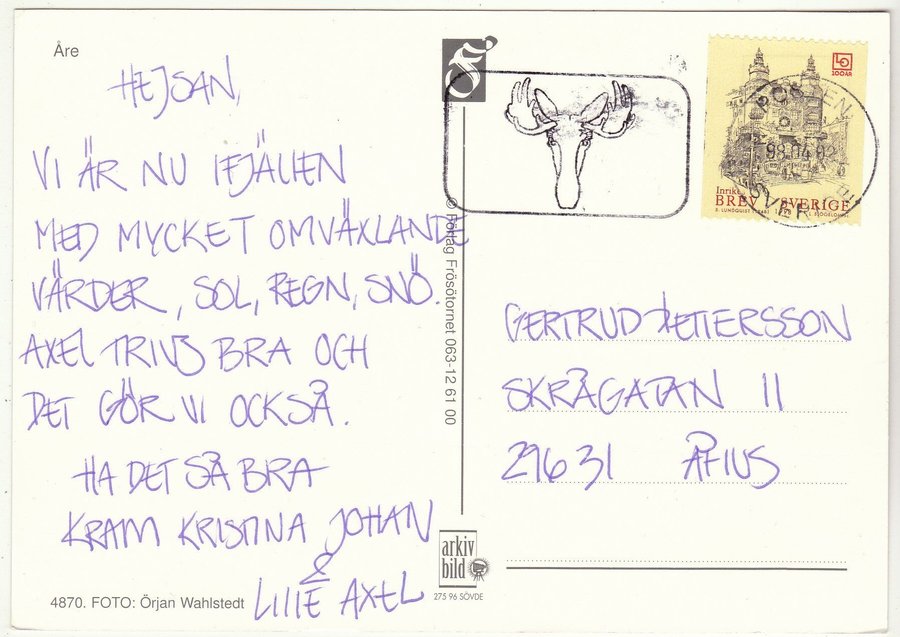 Åre
HEJSAN,
VI ÄR NU I FJÄLLEN
MED MYCKET OMVÄXLANDE
VÄRDER, SOL, REGN, SNÖ.
AXEL TRIVS BRA OCH
DET GÖR VI OCKSÅ.
HA DET SÅ BRA
KRAM KRISTINA JOHAN
&
LILLE AXEL
4870. FOTO: Örjan Wahlstedt
© Förlag Frösötornet 063-12 61 00
arkiv
bild
275 96 SÖVDE
LO
100 ÅR
POSTEN
98.04.02
SVERIGE
Inrikes
BREV SVERIGE
GERTRUD PETTERSSON
SKRÅGATAN 11
29631 ÅHUS